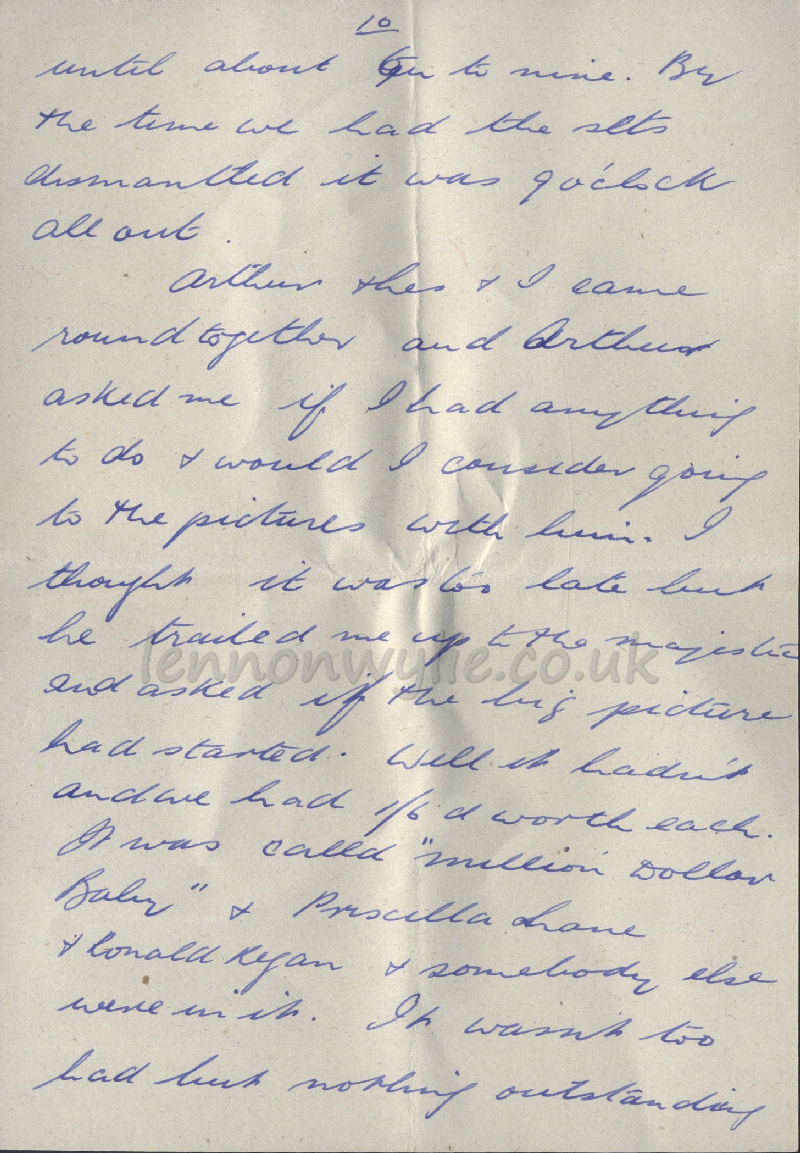 10
until about ten to nine. By
the time we had the sets
dismantled it was 9 o'clock
all out.
Arthur & hes & I came
round together and Arthur
asked me if I had anything
to do & would I consider going
to the pictures with him. I
thought it was too late but
he trailed me up to the majestic
and asked if the big picture
had started. Well it hadn't
and we had 1/6 d worth each.
It was called "million Dollar
Baby" & Priscilla Lane
& Ronald Regan & somebody else
were in it. It wasnt too
bad but nothing outstanding
lennonwylie.co.uk